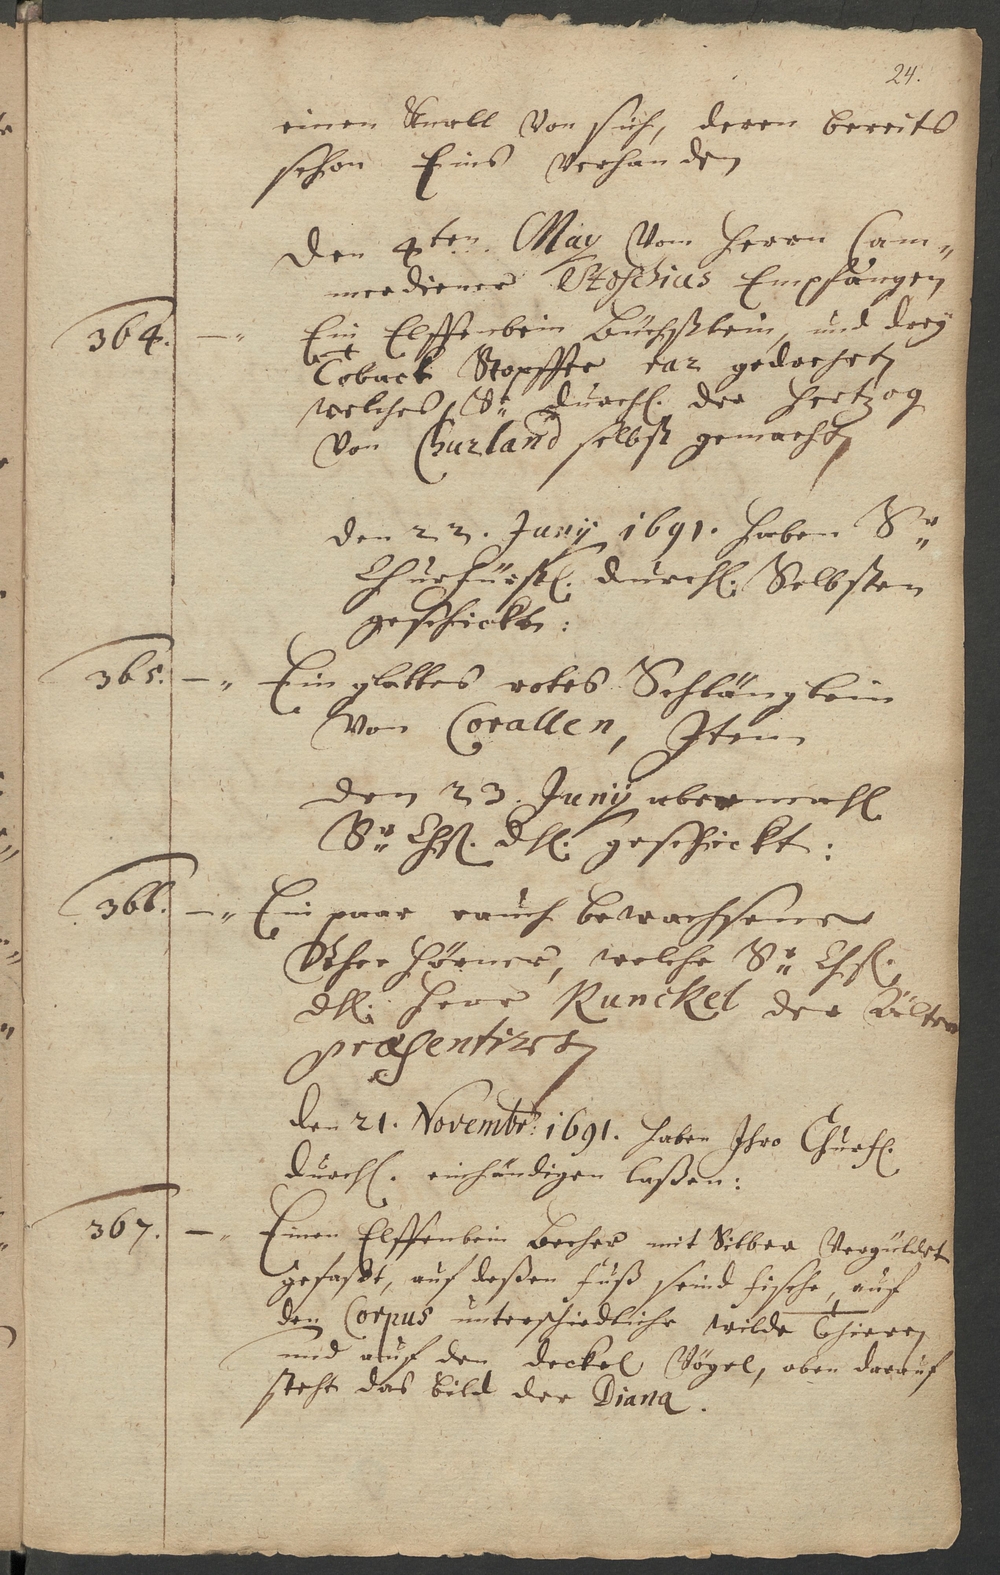 24.
einen Knall von sich, deren bereits
schon Eins verhanden
Den 4ten. May Vom Herrn Cam-
merdiener Stoschius Empfangen
364. Ein Elffenbein Büchßlein, und drey
Toback Stopffer rar gedrehet
welches Sr. Durchl. der Hertzog
von Churland selbst gemacht
Den 22. Junij 1691. haben Sr.
Churfürstl. Durchl. Selbsten
geschickt:
365. Ein glattes rotes Schlänglein
von Corallen, Item
Den 23. Junij abermahl
Sr. Chfl. Dhl. geschickt:
366. Ein paar rauch bewachsene
Rehe Hörner, welche Sr. Chfl.
Dhl. Herr Runckel der Älter
præsentiret
Den 21. Novembr: 1691. haben Ihro Churfl.
Durchl. einhändigen laßen:
367. Einen Elffenbein Becher mit Silber Vergüldet
gefaßt, auf deßen fuß seind fische, auf
den Corpus unterschiedliche wilde Thieren
und auf den deckel Vögel, oben darauf
stehe das bild der Diana.